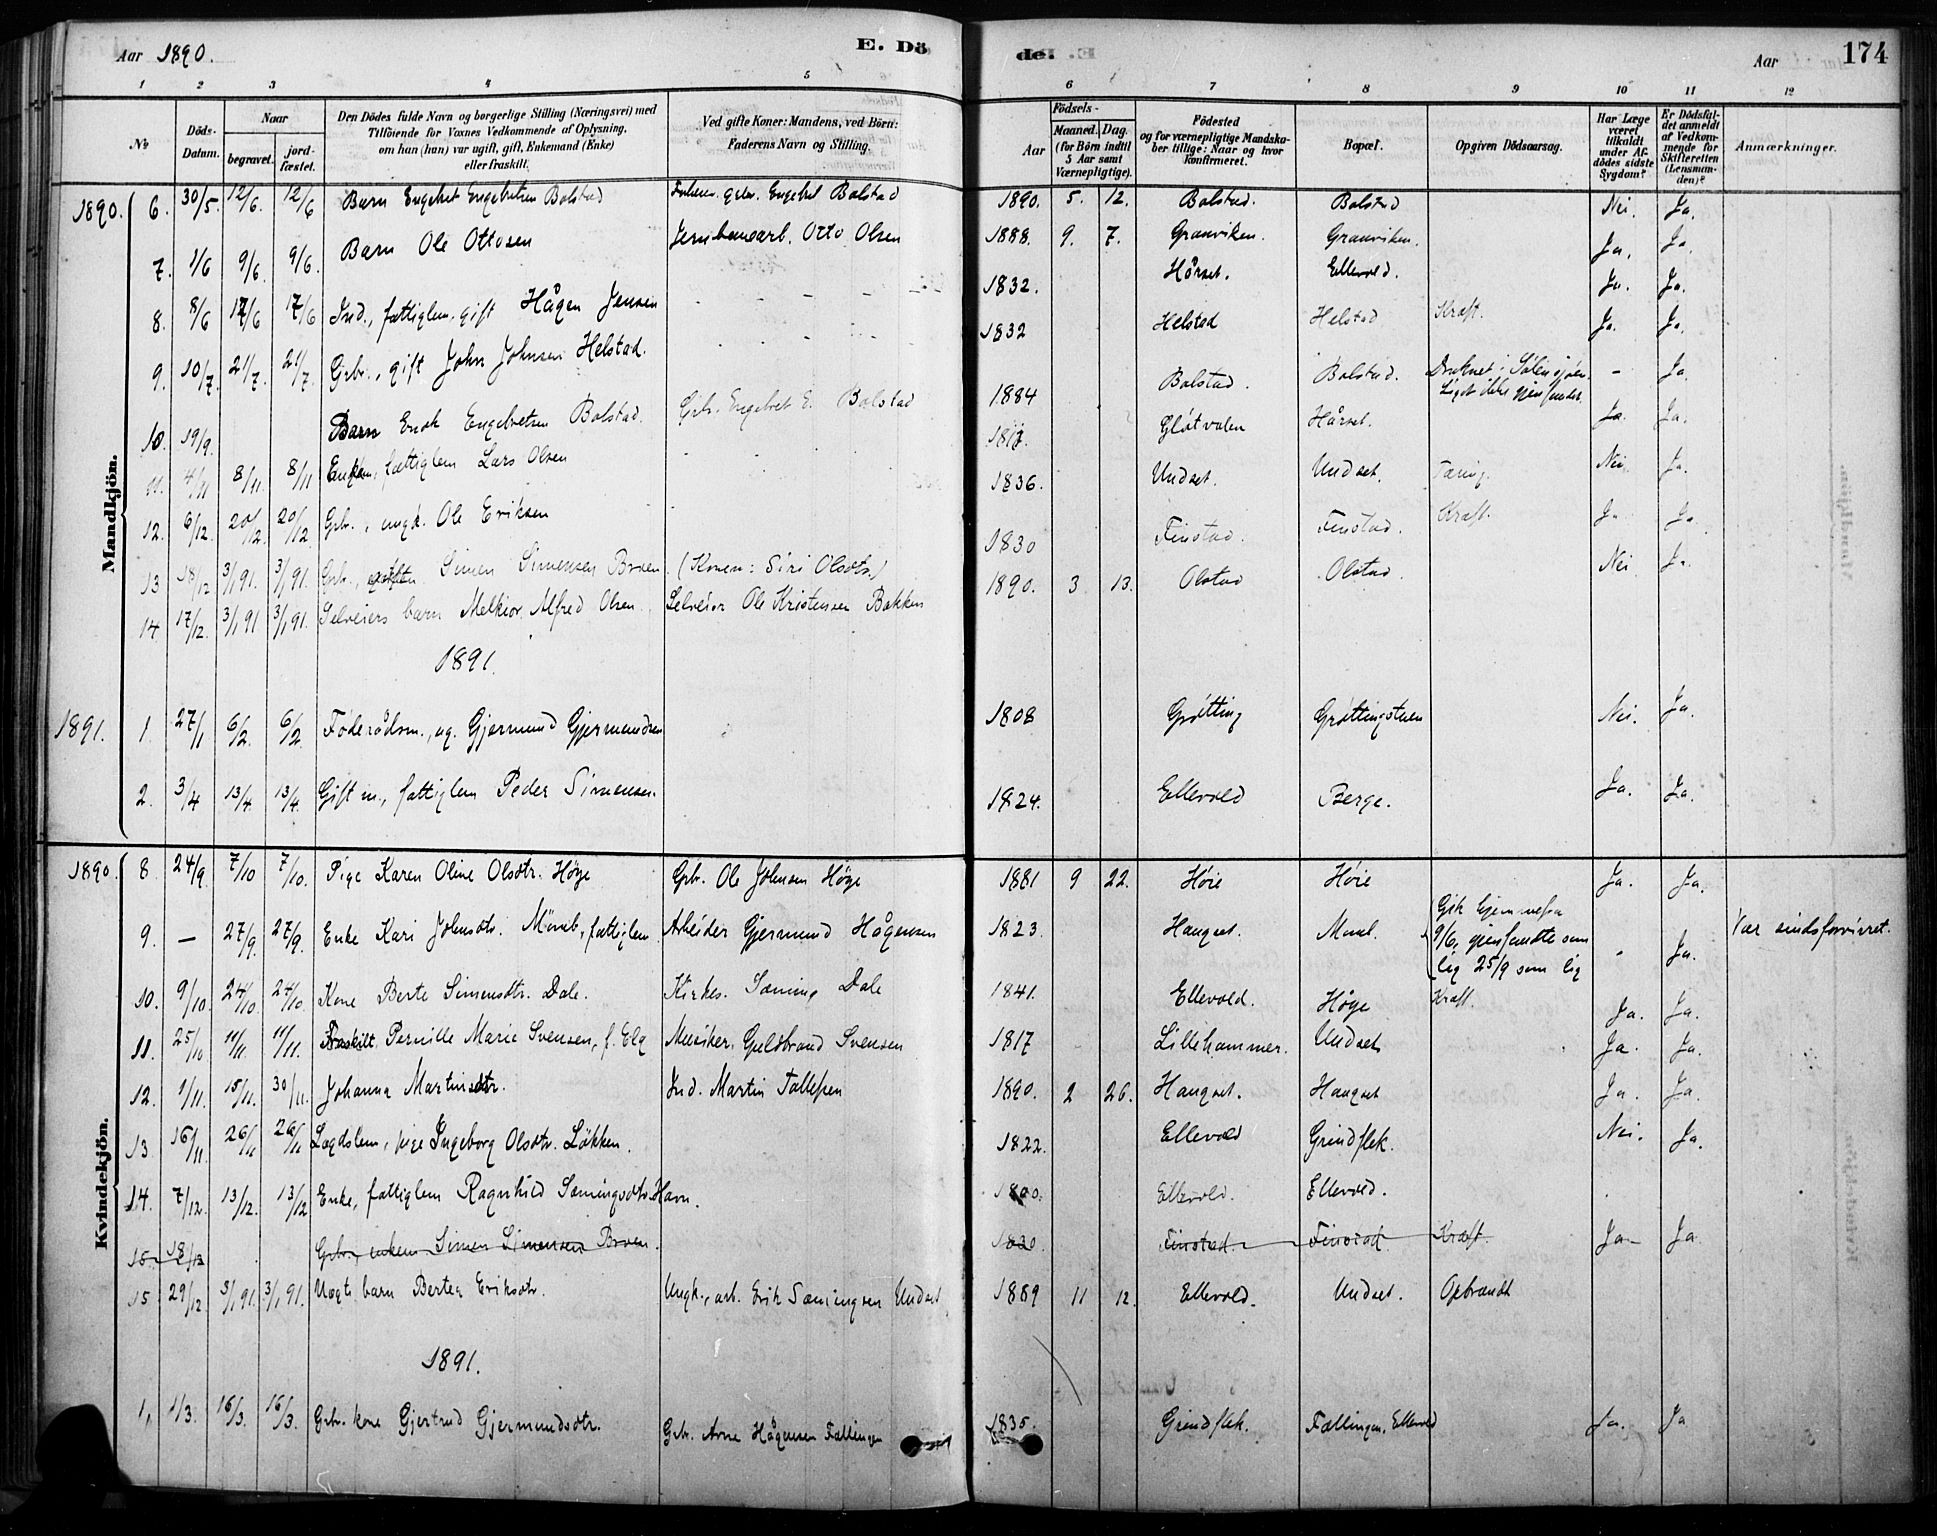 Aar 1890. E. Dö de. Aar 174
1 2 3 4 5 6 7 8 9 10 11 12
No Döds-Datum. Naar begravet. jordfæstet. Den Dödes fulde Navn og borgerlige Stilling (Næringsvei) med Tilföiende for Voxnes Vedkommende af Oplysning, om han (hun) var ugift, gift, Enkemand (Enke) eller fraskilt. Ved gifte Koner: Mandens, ved Börn: Faderens Navn og Stilling. Födsels- Aar Maaned. Dag. (for Börn indtil 5 Aar samt Værnepligtige). Födested og for værnepligtige Mandskaber tillige: Naar og hvor Konfirmeret. Bopæl. Opgiven Dödsaarsag. Har Læge været tilkaldt under Afdödes sidste Sygdom? Er Dödsfaldet anmeldt af Vedkommende for Skifteretten (Lensmanden)? Anmærkninger.
Mandkjön.
1890. 6. 30/5. 12/6. 12/6 Barn Engebret Engebretsen Bolstad Engebret Bolstad 1890. 5. 12. Bolstad. Bolstad Nei. Ja.
7. 1/6 9/6. 9/6. Barn Ole Ottosen Jernbanearb. Otto Olsen 1888. 9. 7. Granviken. Granviken. Ja. Ja.
8. 8/6 17/6 17/6 Ind., fattiglem, gift Hågen Jensen 1832. Hårset. Ellevold. Ja. Ja.
9. 10/7. 21/7. 21/7. Grbr., gift John Johnsen Helstad. 1832 Helstad Helstad Kræft. Ja. Ja.
10. 19/9. Barn Enok Engebretsen Bolstad. Grb. Engebret E. Bolstad 1884 Bolstad. Bolstad. Druknet i Sølensjøen. Liget ikke gjenfundet. - Ja.
11. 4/11 8/11. 8/11 Enkem, fattiglem Lars Olsen Gløtvolen Hårset. Ja. Ja.
12. 6/12. 20/12. 20/12 Grb., ungk. Ole Eriksen 1836. Undset. Undset. Tæring. Nei. Ja.
13 18/12 3/1 91. 3/1 91. Grb., Simen Simensen Broen. (Konen: Siri Olsdtr.) 1830 Finstad. Finstad. Kræft. Ja Ja.
14 17/12. 3/1 91 3/1 91. Selveiers barn Melkior Alfred Olsen. Selveier Ole Kristensen Bakken 1890. 3 13. Olstad Olstad. Nei. Ja.
1891.
1891. 1. 27/1 6/2. 6/2. Føderådsm., ug. Gjermund Gjermundsen 1808 Grøtting Grøttingstuen Nei. Ja.
2. 3/4 13/4. 13/4. Gift m., fattiglem Peder Simensen. 1824. Ellevold Berge. Ja. Ja.
Kvindekjön.
1890. 8. 24/9. 7/10 7/10. Pige Karen Oline Olsdtr. Høye Grb. Ole Johnsen Høye 1881 9 22. Høie Høie Ja. Ja.
9. — 27/9. 27/9. Enke Kari Johnsdtr. fattiglem. Arbeider Gjermund Hågensen 1823. Haugset. Gik hjemmefra 9/6, gjenfundte som lig 25/9 som lig - Ja. Var sindsforvirret.
10. 9/10. 24/10 24/10. Kone Berte Simensdtr. Dale. Kirkes. Sæming Dale 1841. Ellevold. Høye Kræft. Ja. Ja.
11. 25/10 11/11. 11/11. Fraskilt Pernille Marie Svensen, f. Elg Musiker Guldbrand Svensen 1817 Lillehammer. Undset Ja. Ja.
12. 1/11. 15/11. 30/11. Johanna Martinsdtr. Ind. Martin Tollefsen 1890. 2 26. Haugset. Haugset Ja. Ja.
13. 16/11. 26/11 26/11 Lægdslem, pige Ingeborg Olsdtr. Løkken. 1822. Ellevold Grindflek. Nei. Ja.
14 7/12. 13/12. 13/12 Enke, fattiglem Ragnhild Sæmingsdtr. Havn. Ellevold. Ellevold.
15. 18/12 Grb., enkem Simen Simensen Broen. 1830. Finstad. Finstad. Kræft. Ja Ja
15 29/12. 3/1 91. 3/1 91. Uægte barn Bertea Eriksdtr. Ungk., arb. Erik Sæmingsen Undset 1889 11 12. Ellevold. Undset. Opbrændt
1891.
1. 1/3. 16/3. 16/3. Grb. kone Gjertrud Gjermundsdtr. Grb. Arne Hågensen Fællingen 1835. Grindflek. Fællingen, Ellevold Ja. Ja